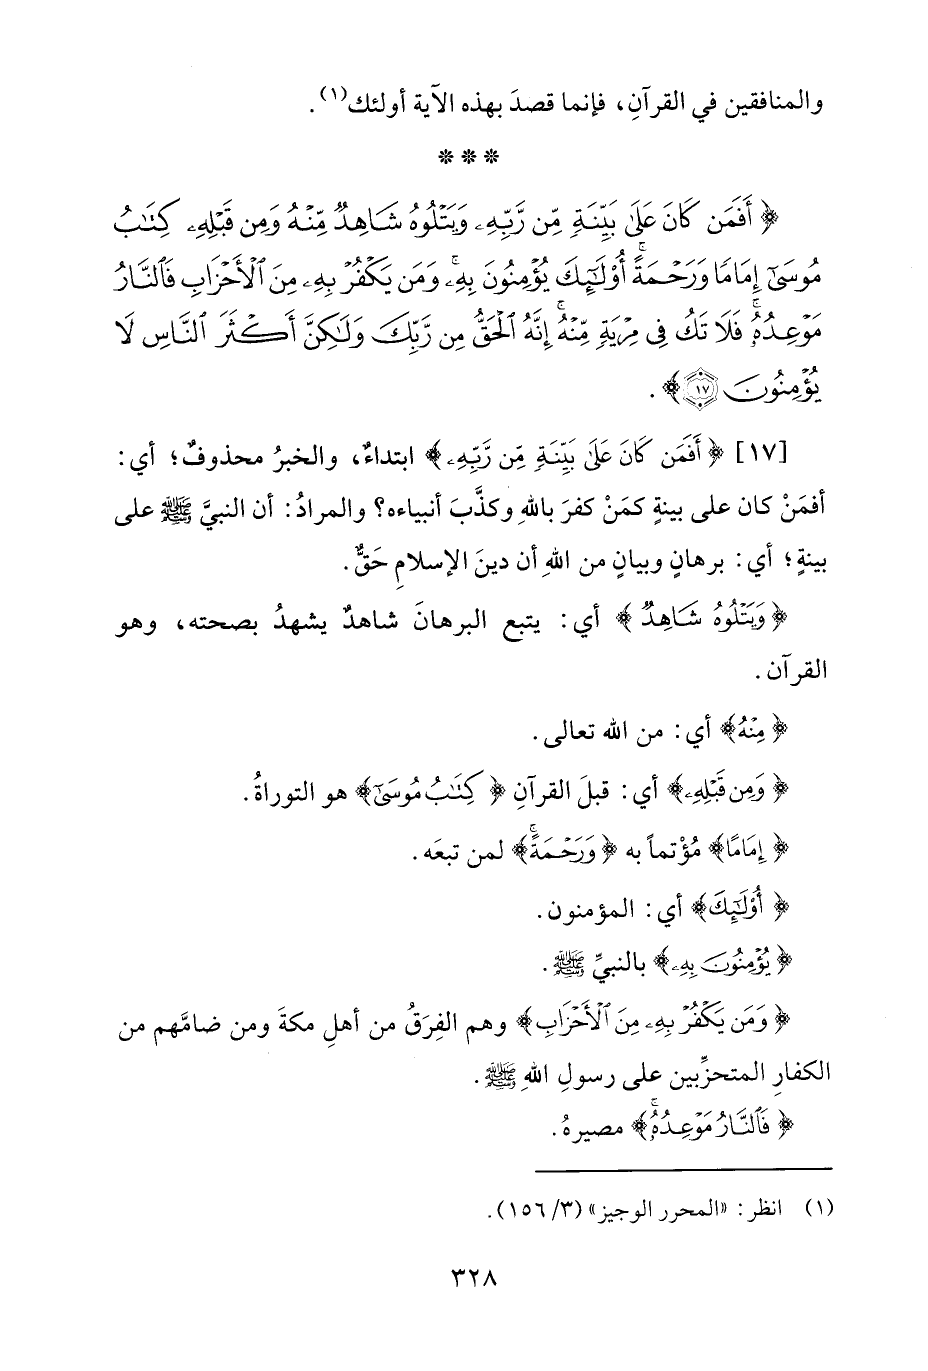 والمنافقين في القرآنِ، فإنما قصدَ بهذه الآية أولئك(١).
* * *
﴿ أَفَمَن كَانَ عَلَىٰ بَيِّنَةٍ مِّن رَّبِّهِۦ وَيَتْلُوهُ شَاهِدٌ مِّنْهُ وَمِن قَبْلِهِۦ كِتَٰبُ
مُوسَىٰٓ إِمَامًا وَرَحْمَةً ۚ أُو۟لَٰٓئِكَ يُؤْمِنُونَ بِهِۦ ۚ وَمَن يَكْفُرْ بِهِۦ مِنَ ٱلْأَحْزَابِ فَٱلنَّارُ
مَوْعِدُهُۥ ۚ فَلَا تَكُ فِى مِرْيَةٍ مِّنْهُ ۚ إِنَّهُ ٱلْحَقُّ مِن رَّبِّكَ وَلَٰكِنَّ أَكْثَرَ ٱلنَّاسِ لَا
يُؤْمِنُونَ ١٧ ﴾.
[١٧] ﴿ أَفَمَن كَانَ عَلَىٰ بَيِّنَةٍ مِّن رَّبِّهِۦ ﴾ ابتداءٌ، والخبرُ محذوفٌ؛ أي:
أفمَنْ كان على بينةٍ كمَنْ كفرَ باللهِ وكذَّبَ أنبياءه؟ والمرادُ: أن النبيَّ ﷺ على
بينةٍ؛ أي: برهانٍ وبيانٍ من اللهِ أن دينَ الإسلامِ حَقٌّ.
﴿ وَيَتْلُوهُ شَاهِدٌ ﴾ أي: يتبع البرهانَ شاهدٌ يشهدُ بصحته، وهو
القرآن.
﴿ مِنْهُ ﴾ أي: من الله تعالى.
﴿ وَمِن قَبْلِهِۦ ﴾ أي: قبلَ القرآنِ ﴿ كِتَٰبُ مُوسَىٰٓ ﴾ هو التوراةُ.
﴿ إِمَامًا ﴾ مُؤْتماً به ﴿ وَرَحْمَةً ۚ ﴾ لمن تبعَه.
﴿ أُو۟لَٰٓئِكَ ﴾ أي: المؤمنون.
﴿ يُؤْمِنُونَ بِهِۦ ﴾ بالنبيِّ ﷺ.
﴿ وَمَن يَكْفُرْ بِهِۦ مِنَ ٱلْأَحْزَابِ ﴾ وهم الفِرَقُ من أهلِ مكةَ ومن ضامَّهم من
الكفارِ المتحزِّبين على رسولِ اللهِ ﷺ.
﴿ فَٱلنَّارُ مَوْعِدُهُۥ ۚ ﴾ مصيرهُ.
(١) انظر: «المحرر الوجيز» (٣/ ١٥٦).
٣٢٨